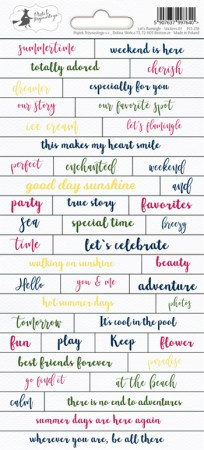 5 907637 997640 >
summertime
weekend is here
totally adored
cherish
dreamer
especially for you
our story
our favorite spot
ice cream
let's flamingle
this makes my heart smile
perfect
enchanted
weekend
good day sunshine
and
party
true story
favorites
sea
special time
breezy
time
let's celebrate
walking on sunshine
beauty
Hello
you & me
adventure
hot summer days
photos
tomorrow
It's cool in the pool
fun
play
Keep
flower
best friends forever
paradise
go find it
at the beach
calm
there is no end to adventures
summer days are here again
wherever you are, be all there